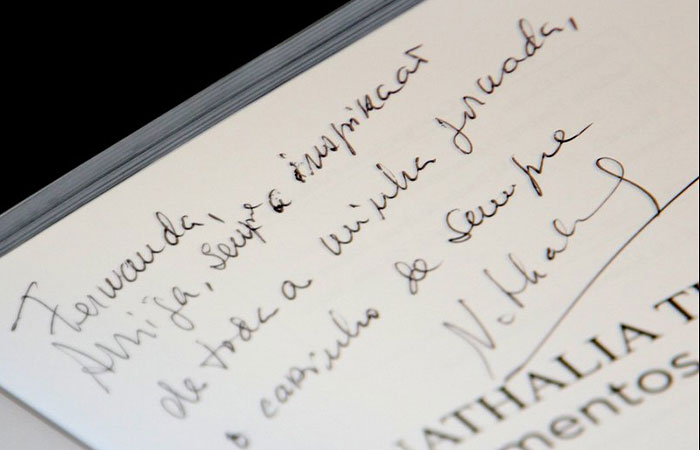 Fernanda,
Amiga, sempre a
de toda a minha jornada,
o carinho de sempre
NATHALIA T
mentos